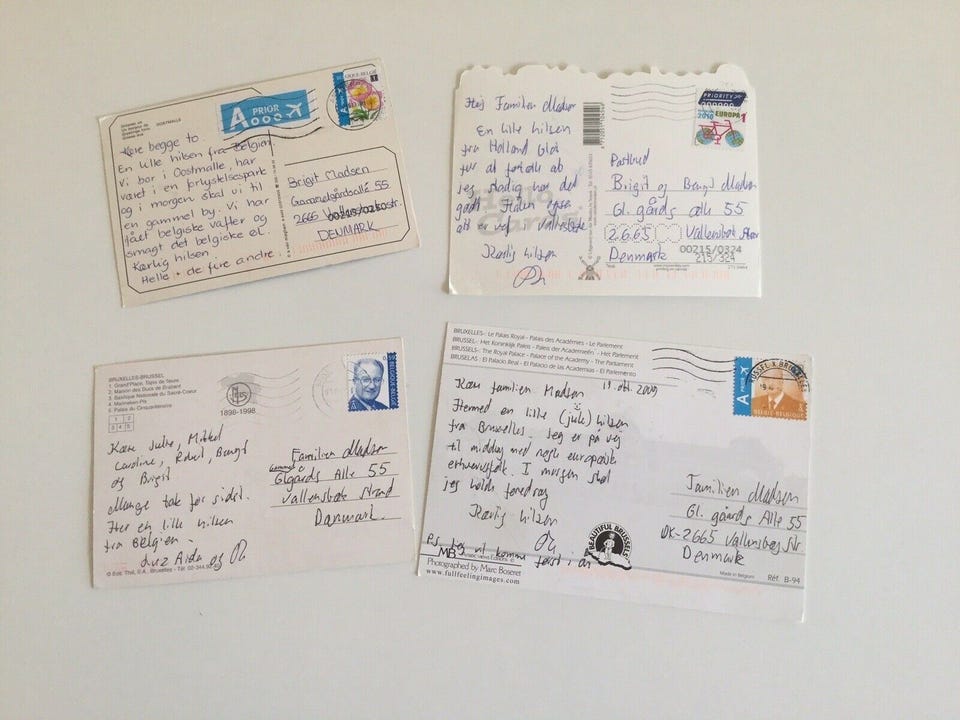 OOSTMALLE
A PRIOR
BELGIQUE-BELGIË
Kære begge to
En lille hilsen fra Belgien.
Vi bor i Oostmalle, har
været i en forlystelsespark
og i morgen skal vi til
en gammel by. Vi har
fået belgiske vafler og
smagt det belgiske øl.
Kærlig hilsen
Helle + de fire andre.
Brigit Madsen
Gammelgårdsallé 55
2665
DENMARK
Hej Familien Madsen
En lille hilsen
fra Holland
for at fortælle at
jeg stadig har det
godt.
Kærlig hilsen
PRIORITY
2010 EUROPA 1
Brigit og Bengt Madsen
Gl. gårds alle 55
2665 Vallensbæk
Denmark
00215/0324
215/324
BRUXELLES-BRUSSEL
1. Grand'Place, Tapis de fleurs
2. Maison des Ducs de Brabant
3. Basilique Nationale du Sacré-Coeur
4. Manneken-Pis
5. Palais du Cinquantenaire
1 2
3 4 5
1898-1998
Kære Julie, Mikkel
Caroline, Robert, Bengt
og Brigit
Mange tak for sidst.
Her en lille hilsen
fra Belgien.
Luz Aida og
Familien Madsen
Glgårds Alle 55
Vallensbæk Strand
Danmark.
BRUXELLES-: Le Palais Royal - Palais des Académies - Le Parlement
BRUSSEL-: Het Koninklijk Paleis - Paleis der Academieën - Het Parlement
BRUSSELS-: The Royal Palace - Palace of the Academy - The Parliament
BRUSELAS-: El Palacio Real - El Palacio de las Academias - El Parlemento
Kære familien Madsen
okt. 2009
Hermed en lille (jule) hilsen
fra Bruxelles. Jeg er på vej
til middag med nogle europæisk
erhvervsfolk. I morgen skal
jeg holde foredrag
Kærlig hilsen
Ps. Jeg vil komme først i år
A
BELGIË-BELGIQUE
Familien Madsen
Gl. gårds Alle 55
DK-2665 Vallensbæk Str
Denmark
BEAUTIFUL BRUSSELS
MB
Photographed by Marc Boseret
www.fullfeelingimages.com
Made in Belgium
Réf. B-94